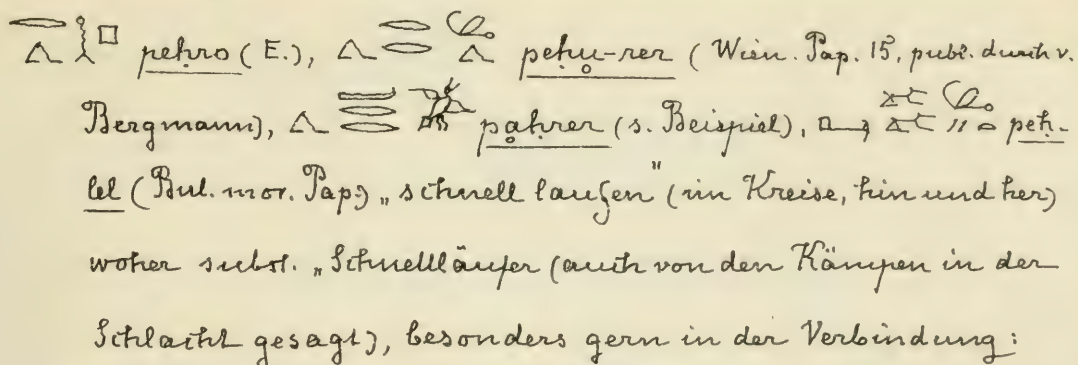 peḥro (E.), peḥu-rer (Wien. Pap. 15, publ. durch v.
Bergmann), paḥrer (s. Beispiel), peḥ-
lel (Bul. mor. Pap.) „schnell laufen" (im Kreise, hin und her)
woher subst. „Schnellläufer (auch von den Kämpen in der
Schlacht gesagt), besonders gern in der Verbindung: